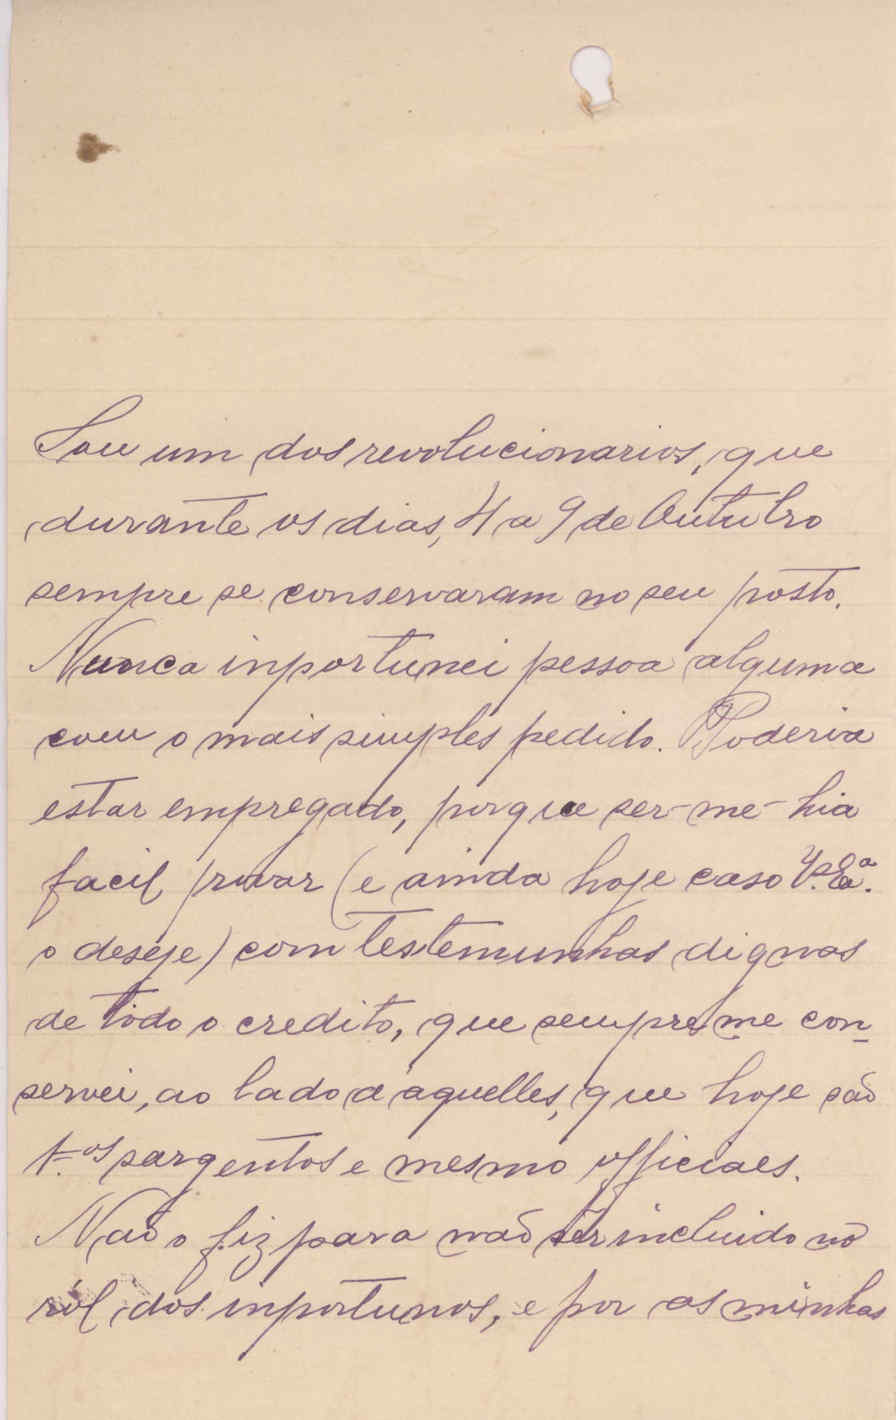 Sou um dos revolucionarios, que
durante os dias, 4 a 9 de Outubro
sempre se conservaram no seu posto.
Nunca inportunei pessoa alguma
com o mais simples pedido. Poderia
estar empregado, porque ser-me-hia
facil provar (e ainda hoje caso V.ª Ex.ª
o deseje) com testemunhas dignas
de todo o credito, que sempre me con-
servei, ao lado d'aquelles, que hoje são
1.os sargentos e mesmo officiaes.
Não o fiz para não ser incluido no
ról dos inportunos, e por as minhas